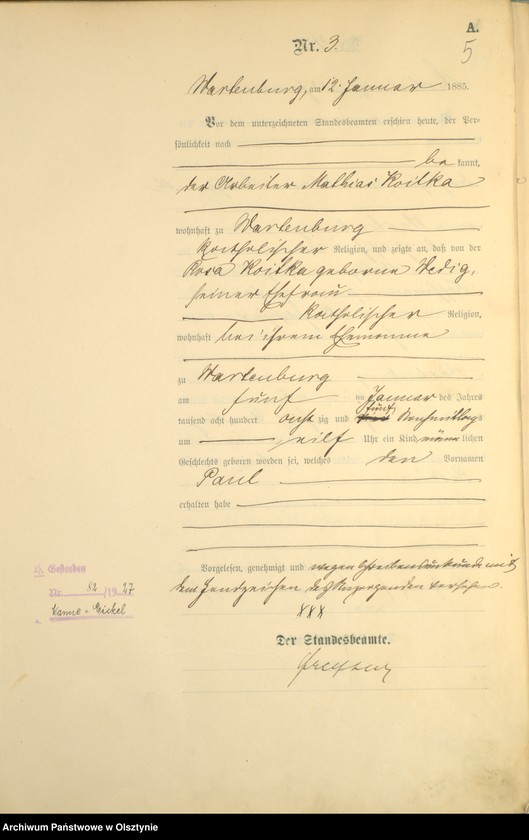 A.
5
Nr. 3.
Wartenburg, am 12. Januar 1885.
Vor dem unterzeichneten Standesbeamten erschien heute, der Per-
sönlichkeit nach
be kannt,
der Arbeiter Mathias Koitka
wohnhaft zu Wartenburg
katholischer Religion, und zeigte an, daß von der
Rosa Koitka geborne Wedig,
seiner Ehefrau
katholischer Religion,
wohnhaft bei ihrem Ehemanne
zu Wartenburg
am fünf ten Januar des Jahres
tausend acht hundert acht zig und fünf Nachmittags
um eilf Uhr ein Kind männlichen
Geschlechts geboren worden sei, welches den Vornamen
Paul
erhalten habe
Vorgelesen, genehmigt und wegen Schreibensunkunde mit
dem Handzeichen des Anzeigenden versehen.
XXX
Der Standesbeamte.
Gestorben
Nr. 82/1927